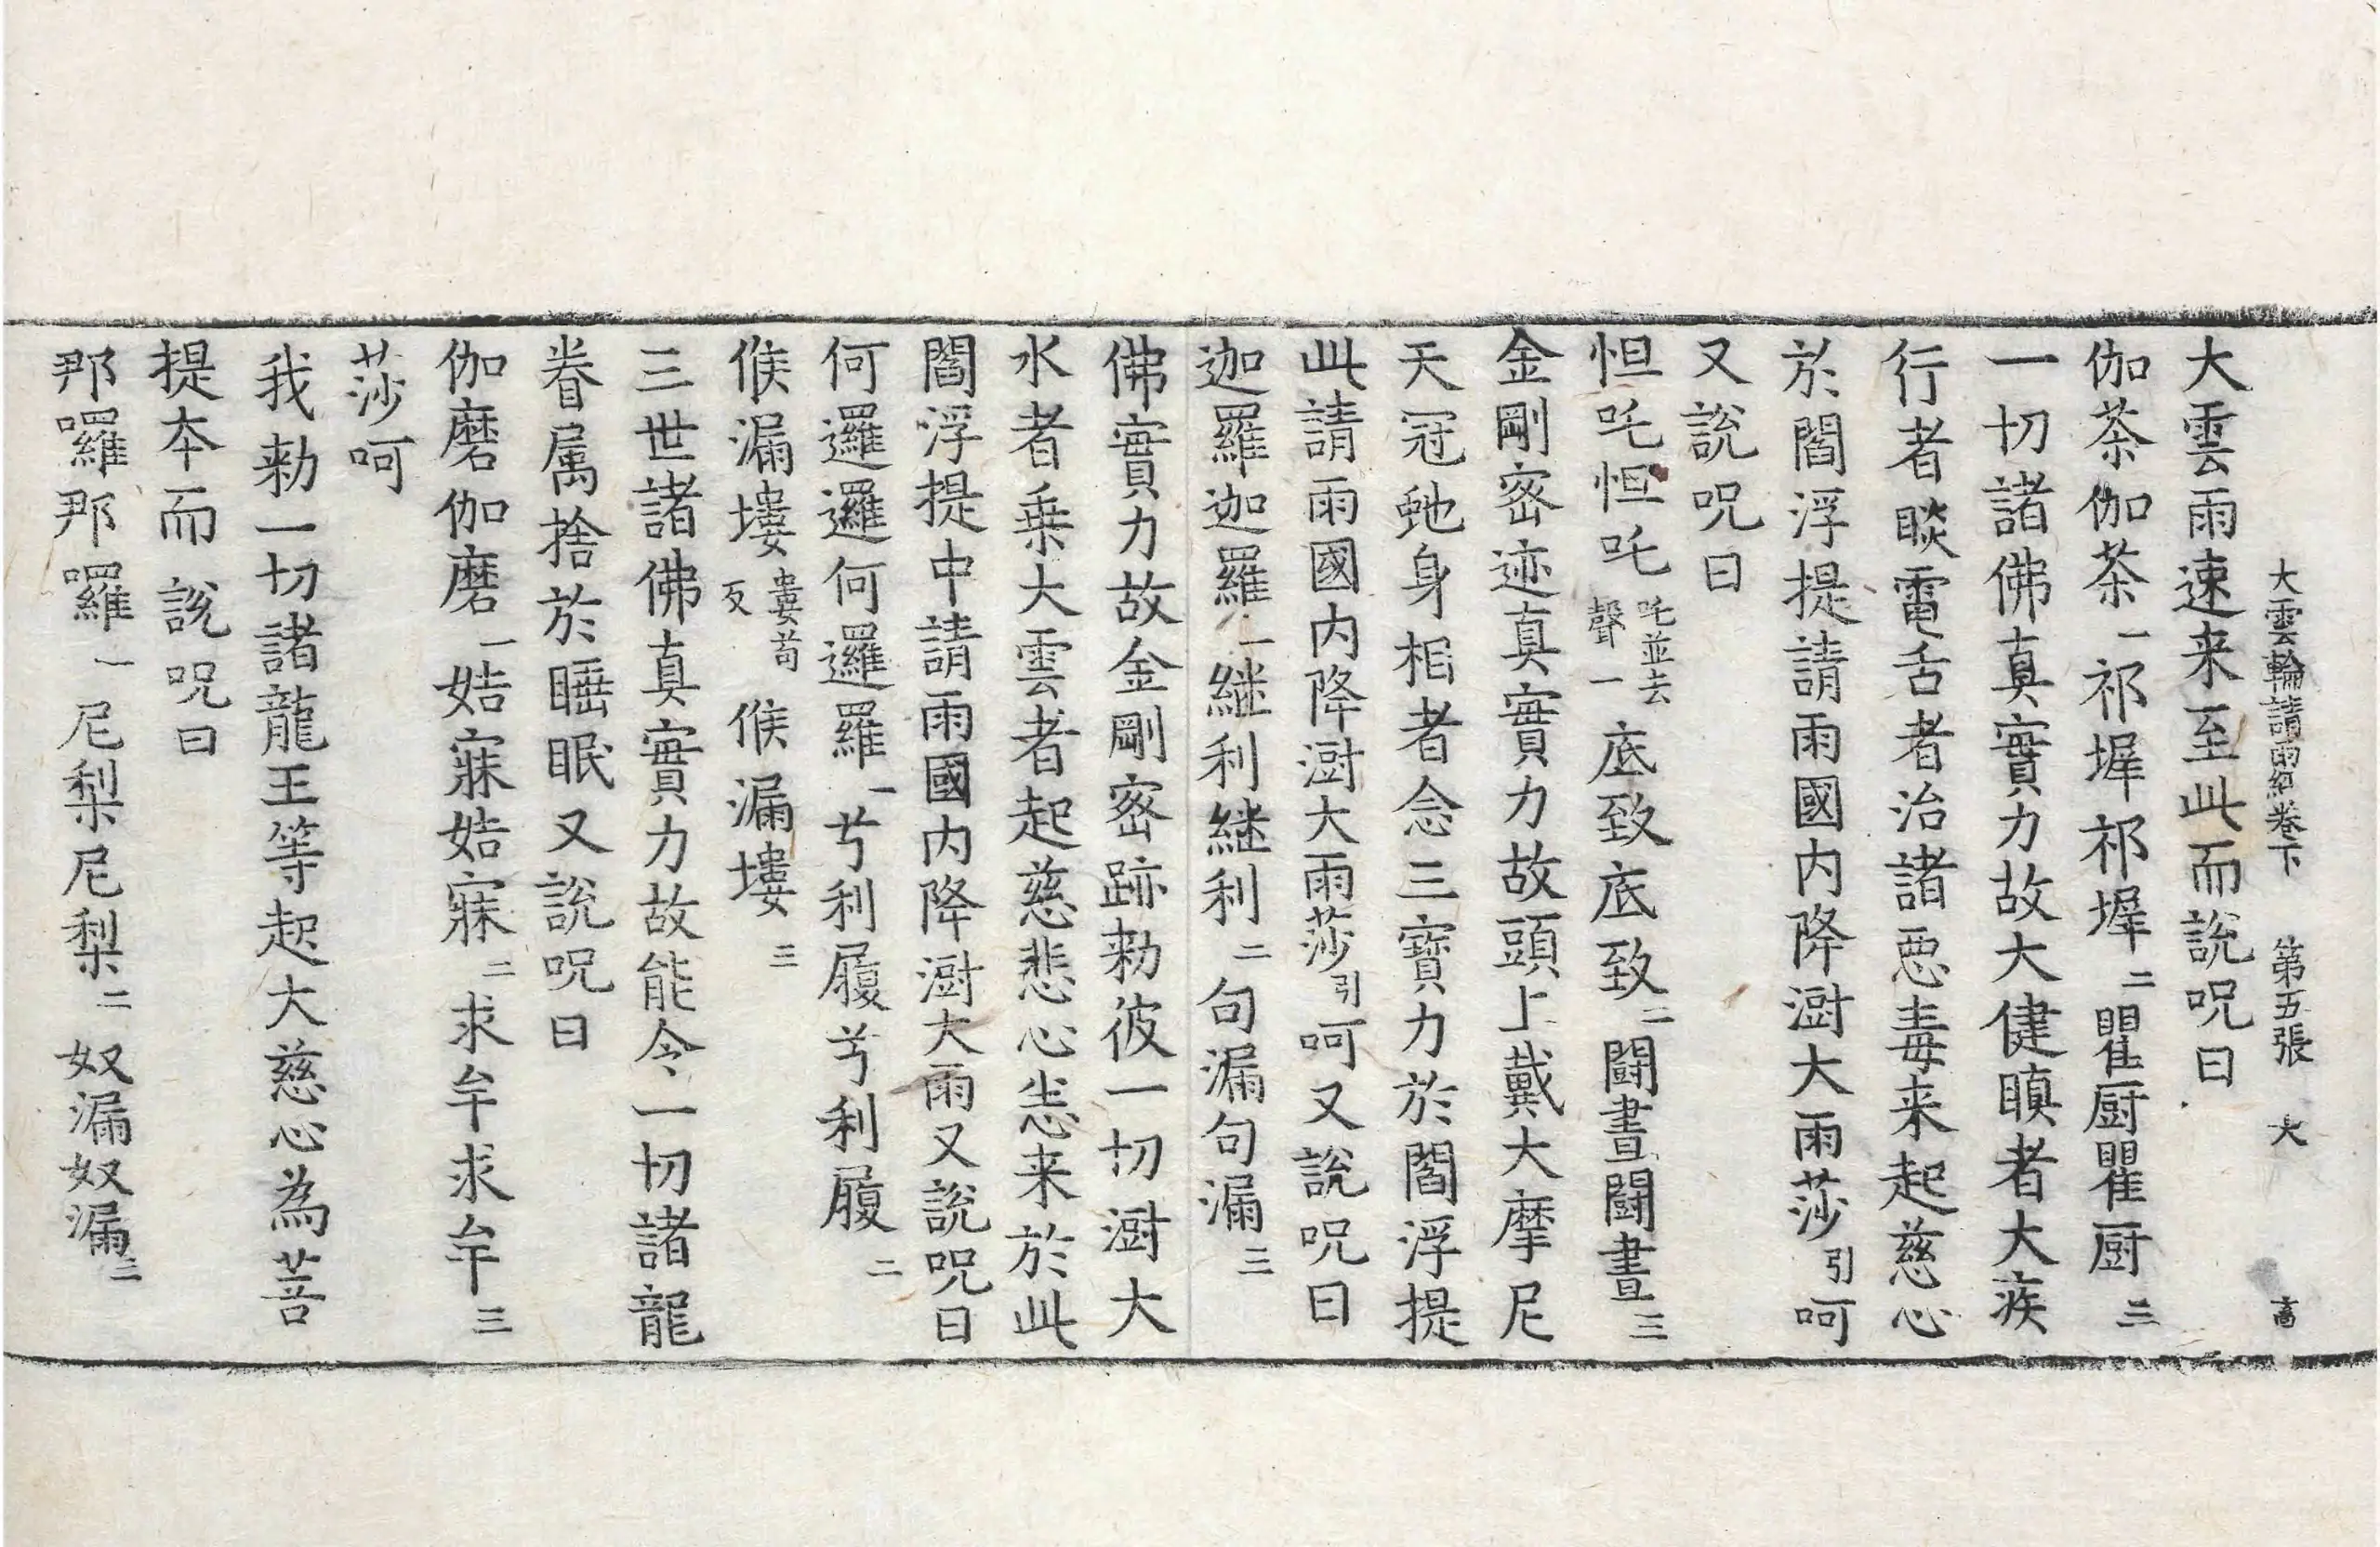 大雲輪請雨經卷下　第五張　大　高
大雲雨速来至此而說呪曰
伽荼伽荼一祁墀祁墀二瞿厨瞿厨三
一切諸佛真實力故大健瞋者大疾
行者睒電舌者治諸惡毒来起慈心
於閻浮提請雨國内降澍大雨莎引呵
又說呪曰
怛吒怛吒吒並去聲一底致底致二鬪晝鬪晝三
金剛密迹真實力故頭上戴大摩尼
天冠虵身相者念三寶力於閻浮提
此請雨國内降澍大雨莎引呵又說呪曰
迦羅迦羅一継利継利二句漏句漏三
佛實力故金剛密跡勑彼一切澍大
水者乗大雲者起慈悲心悉来於此
閻浮提中請雨國内降澍大雨又說呪曰
何邏邏何邏羅一兮利履兮利履二
候漏塿婁苟反候漏塿三
三世諸佛真實力故能令一切諸龍
眷属捨於睡眠又說呪曰
伽磨伽磨一姞寐姞寐二求牟求牟三
莎呵
我勑一切諸龍王等起大慈心為菩
提本而說呪曰
那囉那囉一尼梨尼梨二奴漏奴漏三